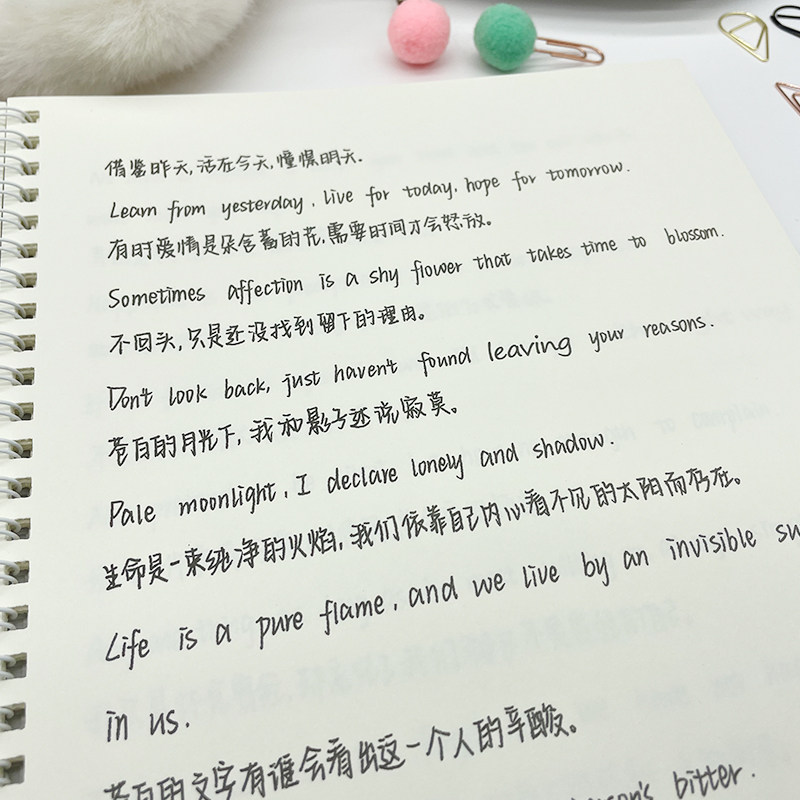 借鉴昨天,活在今天,憧憬明天.
Learn from yesterday, live for today, hope for tomorrow.
有时爱情是朵含蓄的花,需要时间才会怒放。
Sometimes affection is a shy flower that takes time to blossom.
不回头,只是还没找到留下的理由。
Don't look back, just haven't found leaving your reasons.
苍白的月光下,我和影子述说寂莫。
Pale moonlight, I declare lonely and shadow.
生命是一束纯净的火焰,我们依靠自己内心看不见的太阳而存在。
Life is a pure flame, and we live by an invisible su
in us.
苍白的文字有谁会看出这一个人的辛酸。
bitter.